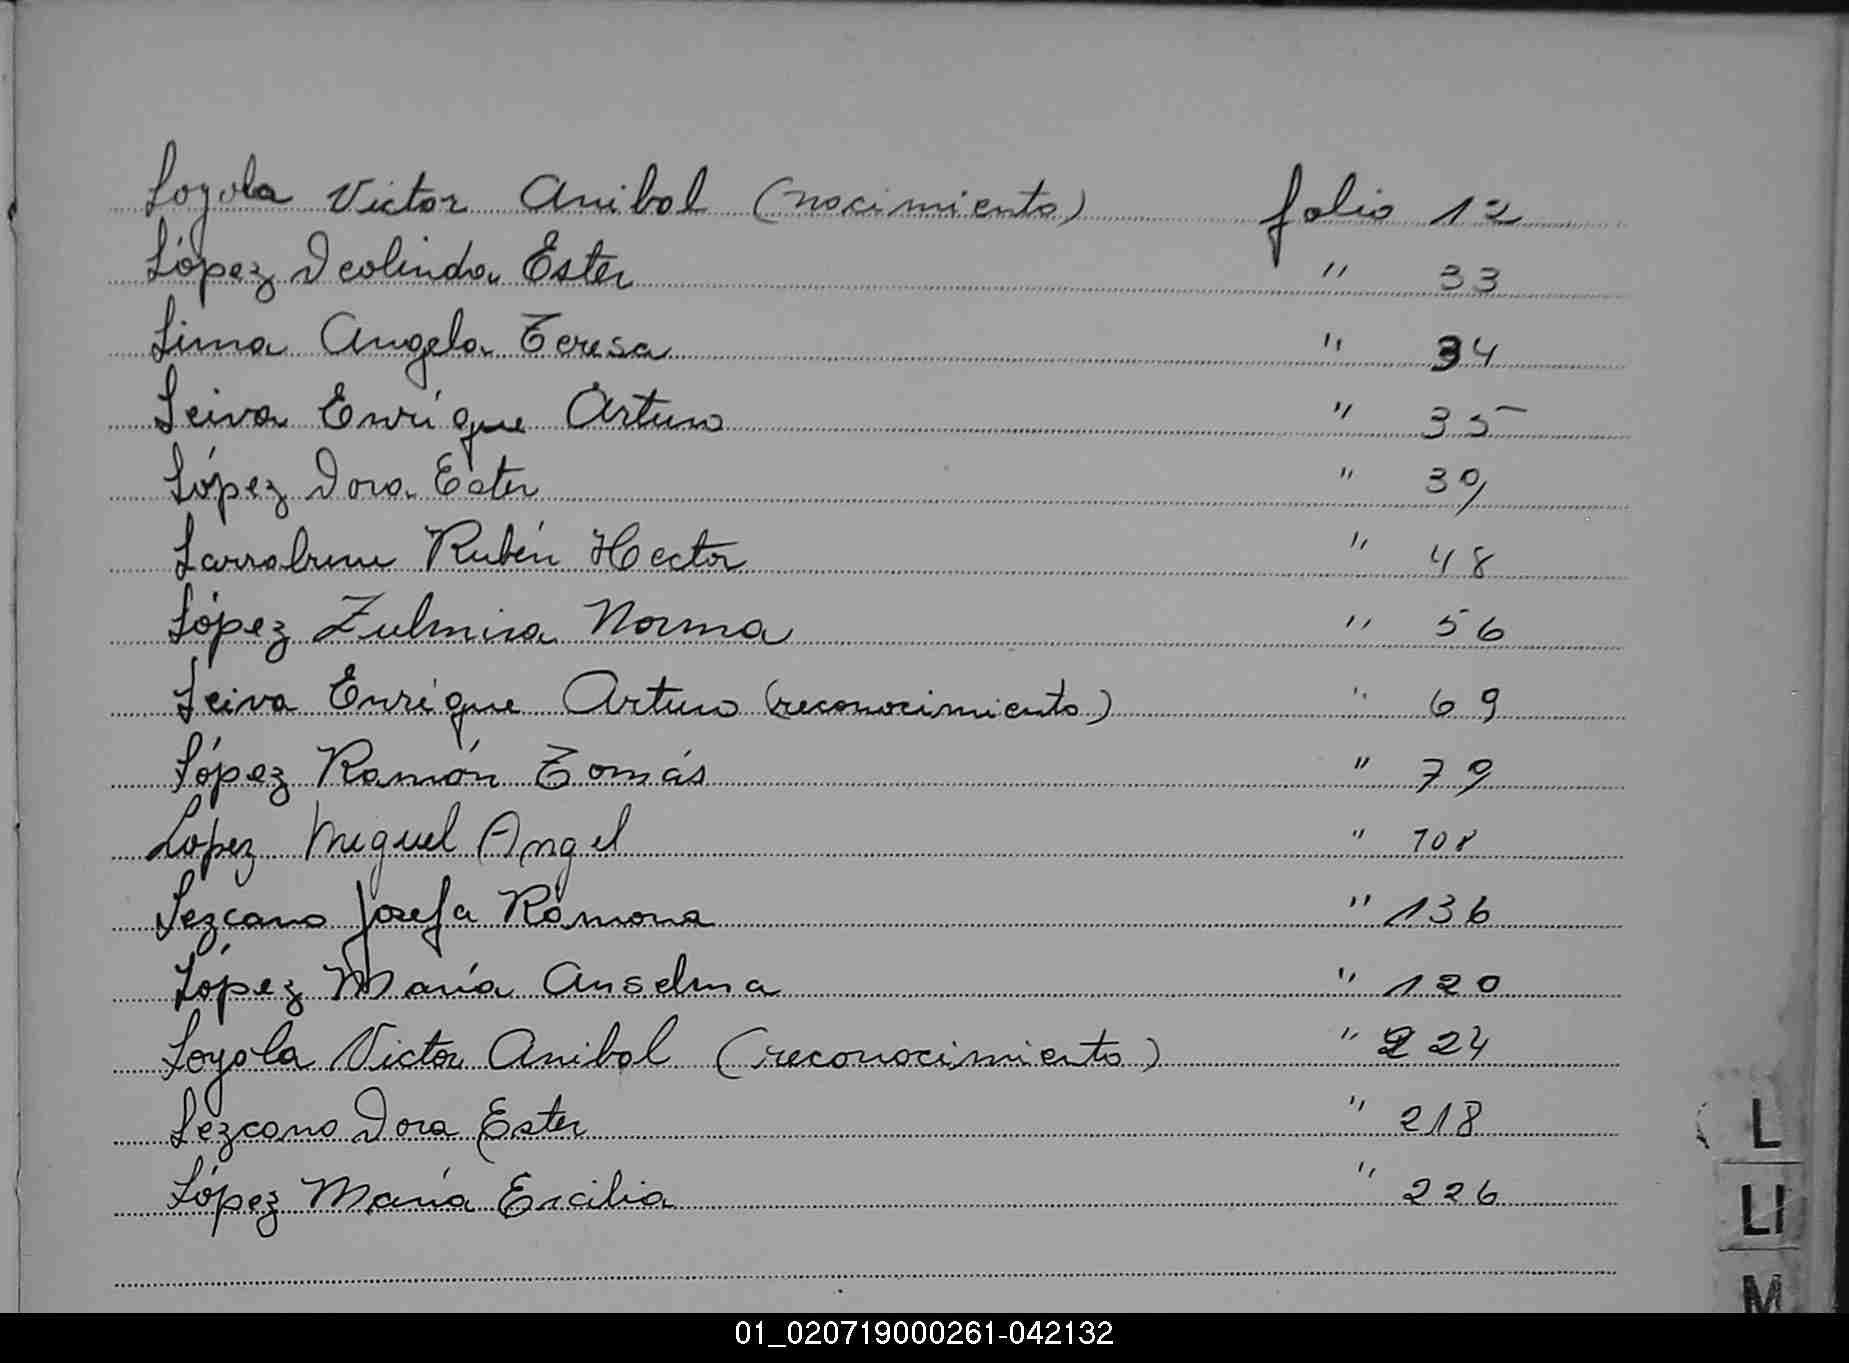 Loyola Victor Anibal (nacimiento) folio 12
López Deolinda Ester " 33
Lima Angela Teresa " 34
Leiva Enrique Arturo " 35
López Dora Ester " 39
Larralrune Rubén Hector " 48
López Zulmira Norma " 56
Leiva Enrique Arturo (reconocimiento) " 69
López Ramón Tomás " 79
Lopez Miguel Angel " 108
Lezcano Josefa Ramona " 136
López María Anselma " 120
Loyola Victor Anibal (reconocimiento) " 224
Lezcano Dora Ester " 218
López María Ercilia " 226
L
LI
M
01_020719000261-042132